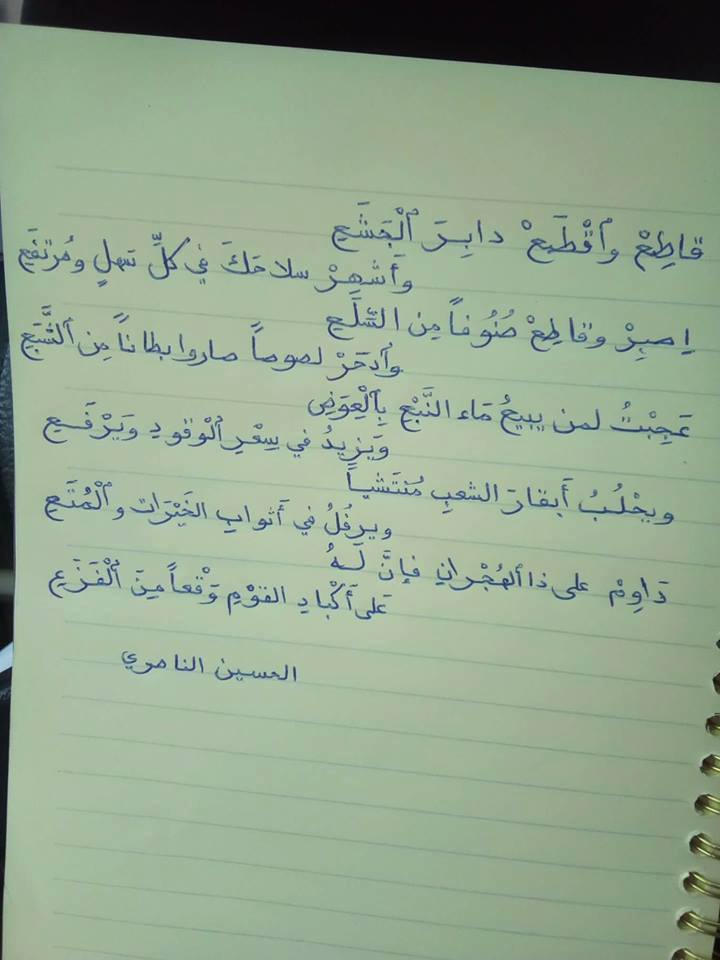 قاطِعْ وٱقْطَعْ دابِرَ ٱلْجَشَعِ
وَأَشهِرْ سلاحَكَ في كلِّ سَهلٍ ومُرتفَعِ
اِصبِرْ وقاطِعْ صُنُوفاً مِن السِّلَعِ
وٱدحَرْ لصوصاً صاروا بطاناً مِن ٱلشَّبَعِ
عَجِبْتُ لمن يبيعُ مَاء النَّبْعِ بِٱلْعِوَضِ
وَيَزِيدُ في سِعْرِ ٱلْوقودِ وَيَرْفَعِ
ويحْلُبُ أَبقارَ الشعبِ مُنْتَشياً
ويرفُلُ في أَثوابِ الخَيْرَاتِ وٱلْمُتَعِ
دَاوِمْ على ذا ٱلهُجْرانِ فإنَّ لَهُ
عَلى أَكْبادِ القوْمِ وَقْعاً مِنَ ٱلْفَزَعِ
الحسين الناصري